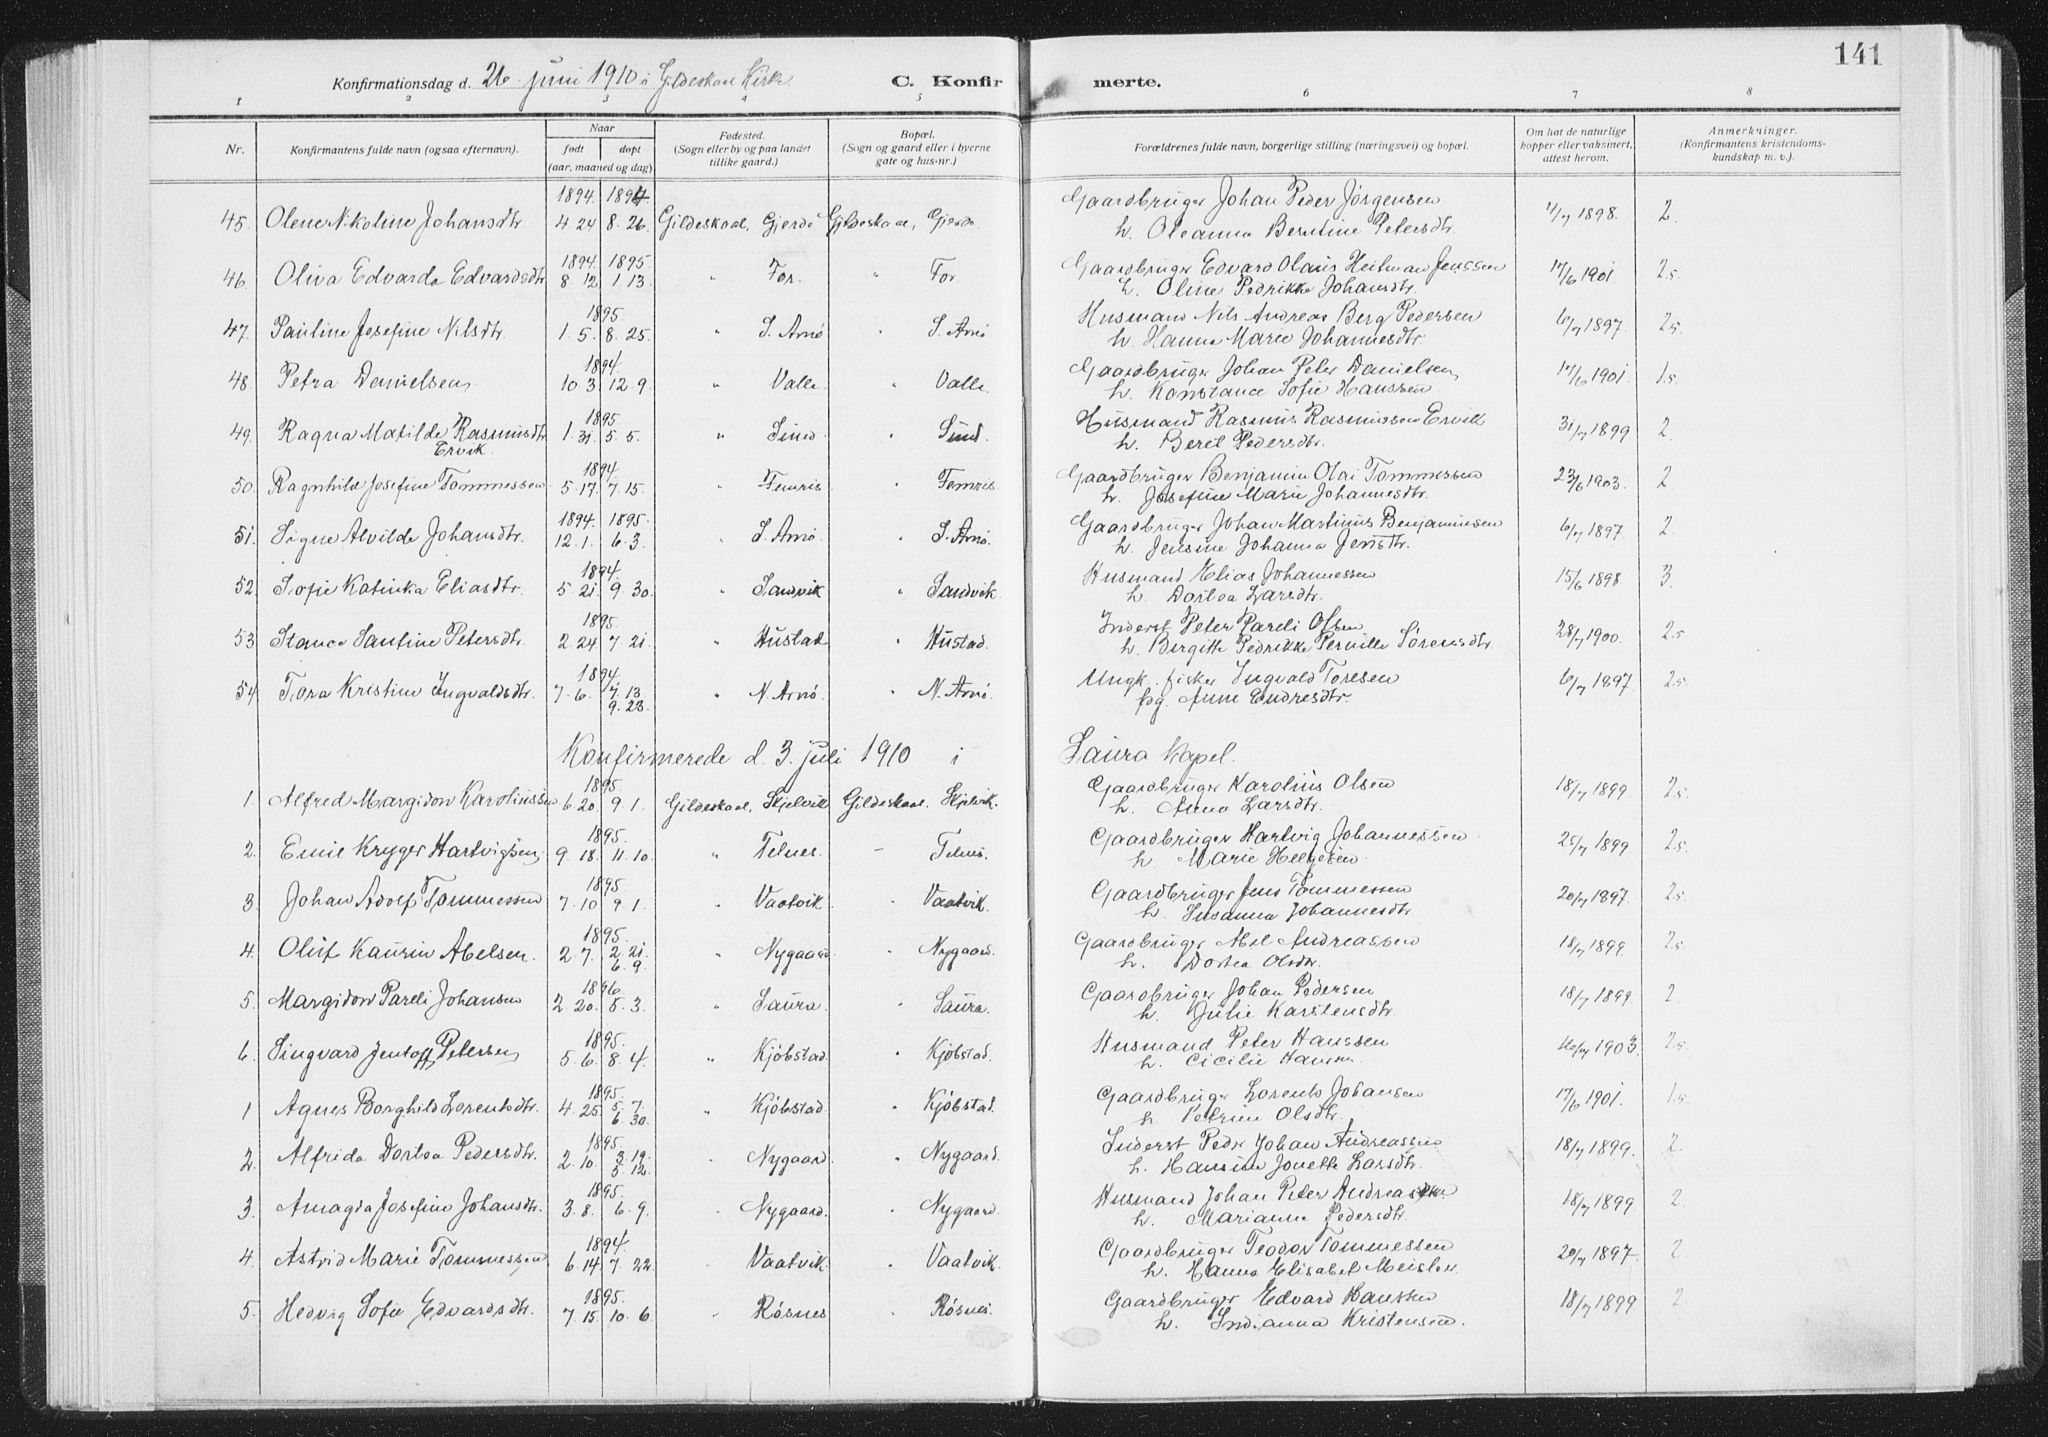 141
Konfirmationsdag d. 26 juni 1910 i Gildeskaal Kirke.
C. Konfirmerte.
1 2 3 4 5 6 7 8
Nr.
Konfirmantens fulde navn (ogsaa efternavn).
Naar
født
døpt
(aar, maaned og dag)
Fødested.
(Sogn eller by og paa landet
tillike gaard.)
Bopæl.
(Sogn og gaard eller i byerne
gate og hus-nr.)
Forældrenes fulde navn, borgerlige stilling (næringsvei) og bopæl.
Om hat de naturlige
kopper eller vaksinert,
attest herom.
Anmerkninger.
(Konfirmantens kristendoms-
kundskap m. v.).
1894. 1894 Gaardbruger Johan Peder Jørgensen
45. Olene Nikoline Johansdtr. 4 24 8. 26. Gildeskaal, Gjerde Gildeskaal, Gjerde. 11/7 1898. 2.
h. Oleanna Berntine Petersdtr.
1894. 1895. Gaardbruger Edvard Olaus Heitman Jenssen
46. Oliva Edvarda Edvardsdtr. 8 12 1. 13. " For. " For. 17/6 1901. 2.5
h. Oline Pedrikke Johansdtr.
1895. Husmand Nils Andreas Berg Pedersen
47. Pauline Josefine Nilsdtr. 1. 5. 8. 25. " S. Arnø " S. Arnø 6/7 1897. 2.5
h. Hanna Marie Johannesdtr.
1894. Gaardbruger Johan Peter Danielsen
48. Petra Danielsen 10. 3. 12. 9. " Valle " Valle. 17/6 1901. 1.5
h. Konstance Sofie Hanssen
1895. Husmand Rasmus Rasmussen Ervik
49. Ragna Matilde Rasmusdtr. 1. 31. 5. 5. " Sund. " Sund. 31/7 1899 2.
Ervik. h. Beret Pedersdtr.
1894. Gaardbruger Benjamin Olai Tommessen
50. Ragnhild Josefine Tommessen 5. 17. 7. 15. " Femris " Femris. 23/6 1903. 2
h. Josefine Marie Johannesdtr.
1894. 1895. Gaardbruger Johan Martinus Benjaminsen
51. Signe Alvilde Johansdtr. 12. 1. 6. 3. " S. Arnø. " S. Arnø. 6/7 1897. 2.
h. Jensine Johanna Jensdtr.
1894. Husmand Elias Johannessen
52. Sofie Katinka Eliasdtr. 5. 21. 9. 30. " Sandvik " Sandvik. 15/6 1898 3.
h. Dortea Larsdtr.
1895. Inderst Peter Pareli Olsen
53 Stance Santine Petersdtr. 2. 24 7. 21. " Hustad " Hustad. 28/7 1900. 2.5
h. Birgitte Pedrikke Pernille Sørensdtr.
1894. Ungk. fisker Ingvald Toresen
54. Tora Kristine Ingvaldsdtr. 7. 6. 7. 13. " N. Arnø. " N. Arnø. 6/7 1897. 2.5
9. 23. pg. Anne Endresdtr.
Konfirmerede d. 3. juli 1910 i Saura Kapel.
1895. Gaardbruger Karolius Olsen
1. Alfred Margidon Karoliussen 6. 20. 9 1. Gildeskaal, Skjelvik Gildeskaal. Skjelvik. 18/7 1899. 2.5
h. Anna Larsdtr.
1895. Gaardbruger Hartvig Johannessen
2. Emil Kryger Hartvigsen 9. 18. 11. 10. " Telnes. – Telnes. 25/7 1899 2.5
h. Marie Helgesen
1895. Gaardbruger Jens Tommessen
3. Johan Adolf Tommessen 7. 10 9. 1. " Vaatvik " Vaatvik. 20/7 1897. 2.5
h. Susanna Johannesdtr.
1895. Gaardbruger Abel Andreassen
4. Oluf Kaurin Abelsen. 2. 7. 2. 21. " Nygaard " Nygaard. 18/7 1899. 2.5
6. 9. h. Dortea Olsdtr.
1896 Gaardbruger Johan Pedersen
5. Margidon Pareli Johansen 2. 20. 5. 3. " Saura " Saura. 18/7 1899. 2.
h. Julie Karstensdtr.
1895. Husmand Peter Hanssen
6. Singvard Jentoft Petersen 5. 6. 8. 4. " Kjøbstad " Kjøbstad. 1903. 2.5
h. Cicilie Hansen
1895. Gaardbruger Lorents Johansen
1 Agnes Borghild Lorentsdtr. 4. 25. 5. 7. " Kjøbstad. " Kjøbstad. 17/6 1901. 1.5
6. 30. h. Petrine Olsdtr.
1895. Inderst Peder Johan Andreassen
2. Alfrida Dortea Pedersdtr. 2. 10. 3. 19. " Nygaard. " Nygaard. 18/7 1899. 2.
5. 12. h. Hansine Jonette Larsdtr.
1895. Husmand Johan Peter Andreassen.
3. Amagda Josefine Johansdtr. 3. 8. 6. 9. " Nygaard. " Nygaard. 18/7 1899. 2.
h. Marianne Pedersdtr.
1894. Gaardbruger Teodor Tommessen
4. Astrid Marie Tommessen 6. 14 7. 22. " Vaatvik. " Vaatvik. 20/7 1897. 2
h. Hanna Elisabet Meisler.
1895. Gaardbruger Edvard Hanssen
5. Hedvig Sofie Edvardsdtr. 7. 15. 10. 6 " Røsnes " Røsnes. 18/7 1899 2
h. Indianna Kristensen.